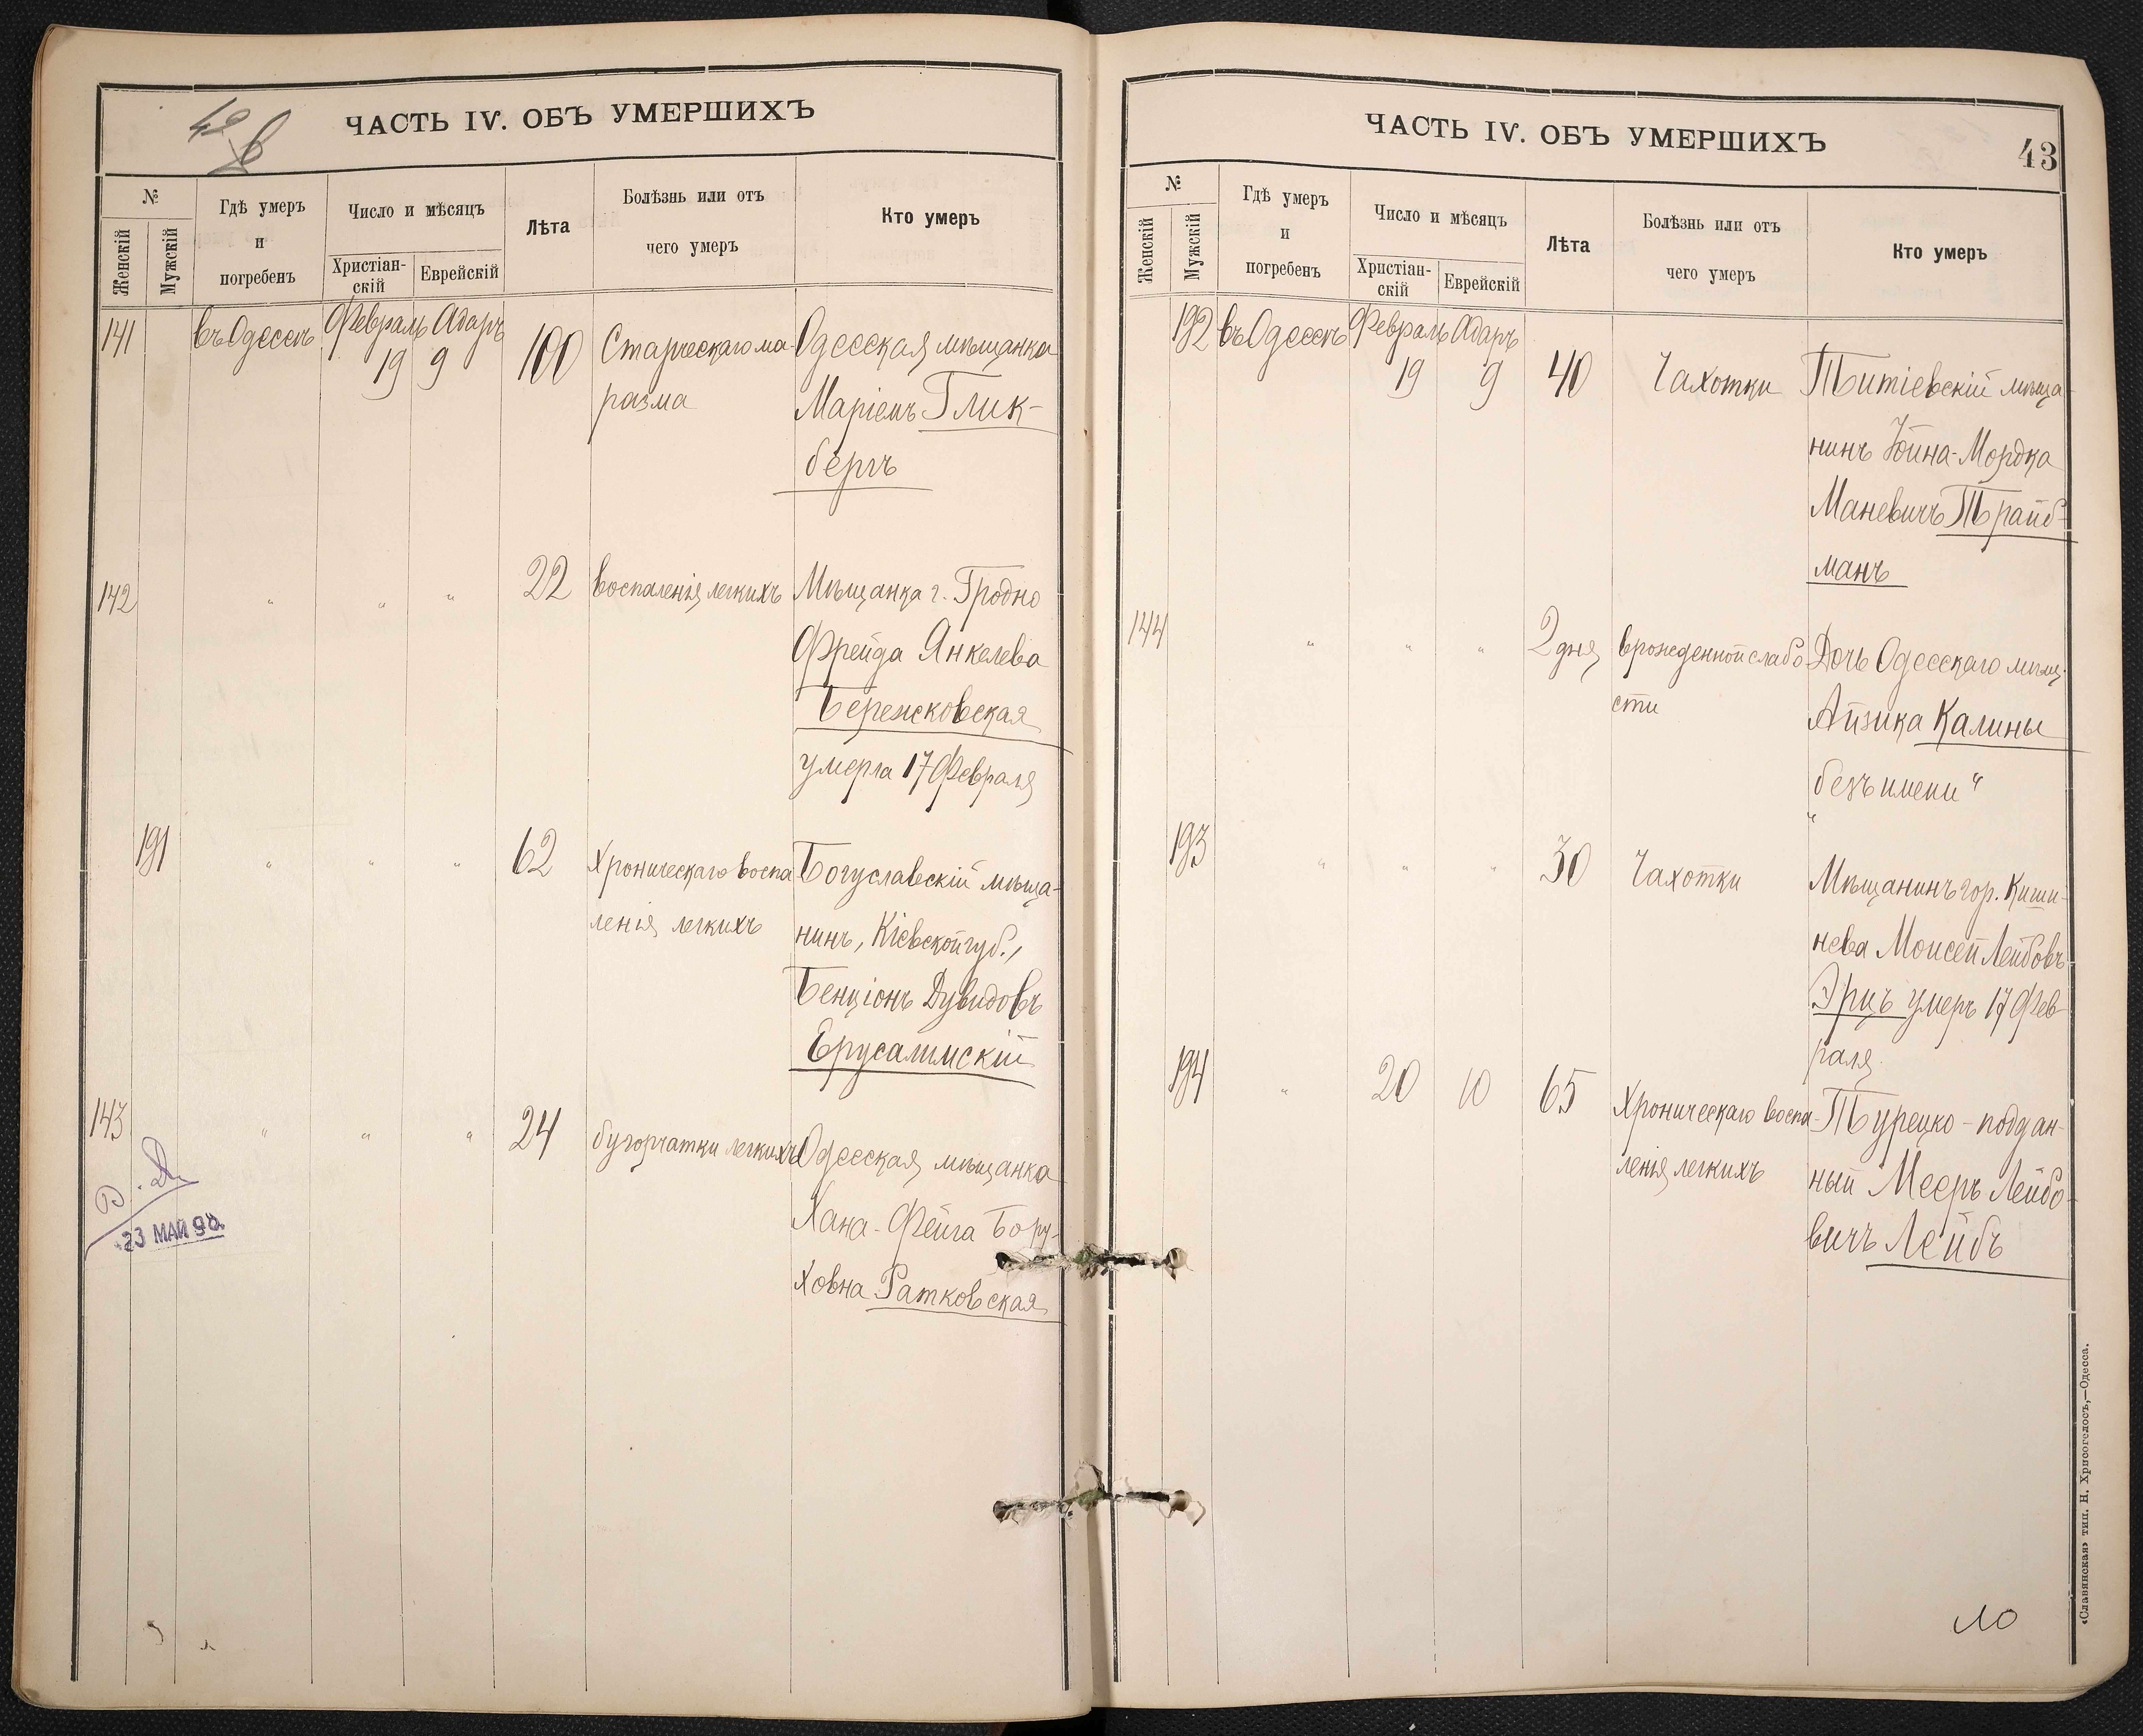 42
ЧАСТЬ IV. ОБЪ УМЕРШИХЪ
№
Женскій
Мужскій
Гдѣ умеръ
и
погребенъ
Число и мѣсяцъ
Христіан-
скій
Еврейскій
Лѣта
Болѣзнь или отъ
чего умеръ
Кто умеръ
141 въ Одессѣ Февраль Адаръ
19 9 100 Старческаго ма- Одесская мѣщанка
разма Маріемъ Глик-
бергъ
142 " " " 22 воспаленія легкихъ Мѣщанка г. Гродно
Фрейда Янкелева
Бережковская
умерла 17 Февраля
191 " " " 62 Хроническаго воспа Богуславскій мѣща-
ленія легкихъ нинъ, Кіевской губ.,
Бенціонъ Дувидовъ
Ерусалимскій
143 " " " 24 бугорчатки легкихъ Одесская мѣщанка
Хана-Фейга Бору-
ховна Ратковская
23 МАЙ 98
ЧАСТЬ IV. ОБЪ УМЕРШИХЪ
43
№
Женскій
Мужскій
Гдѣ умеръ
и
погребенъ
Число и мѣсяцъ
Христіан-
скій
Еврейскій
Лѣта
Болѣзнь или отъ
чего умеръ
Кто умеръ
192 въ Одессѣ Февраль Адаръ
19 9 40 Чахотки Титіевскій мѣща-
нинъ Іойна-Мордка
Маневичъ Трайб-
манъ
144 " " " 2 дня врожденной слабо Дочь Одесскаго мѣщ.
сти Айзика Калины
безъ имени "
"
193 " " " 30 Чахотки Мѣщанинъ гор. Киши-
нева Моисей Лейбовъ
Эрцъ умеръ 17 Фев
раля.
194 " 20 10 65 Хроническаго воспа- Турецко-поддан-
ленія легкихъ ный Мееръ Лейбо-
вичъ Лейбъ
«Славянская» тип. Н. Хрисогелосъ,—Одесса.